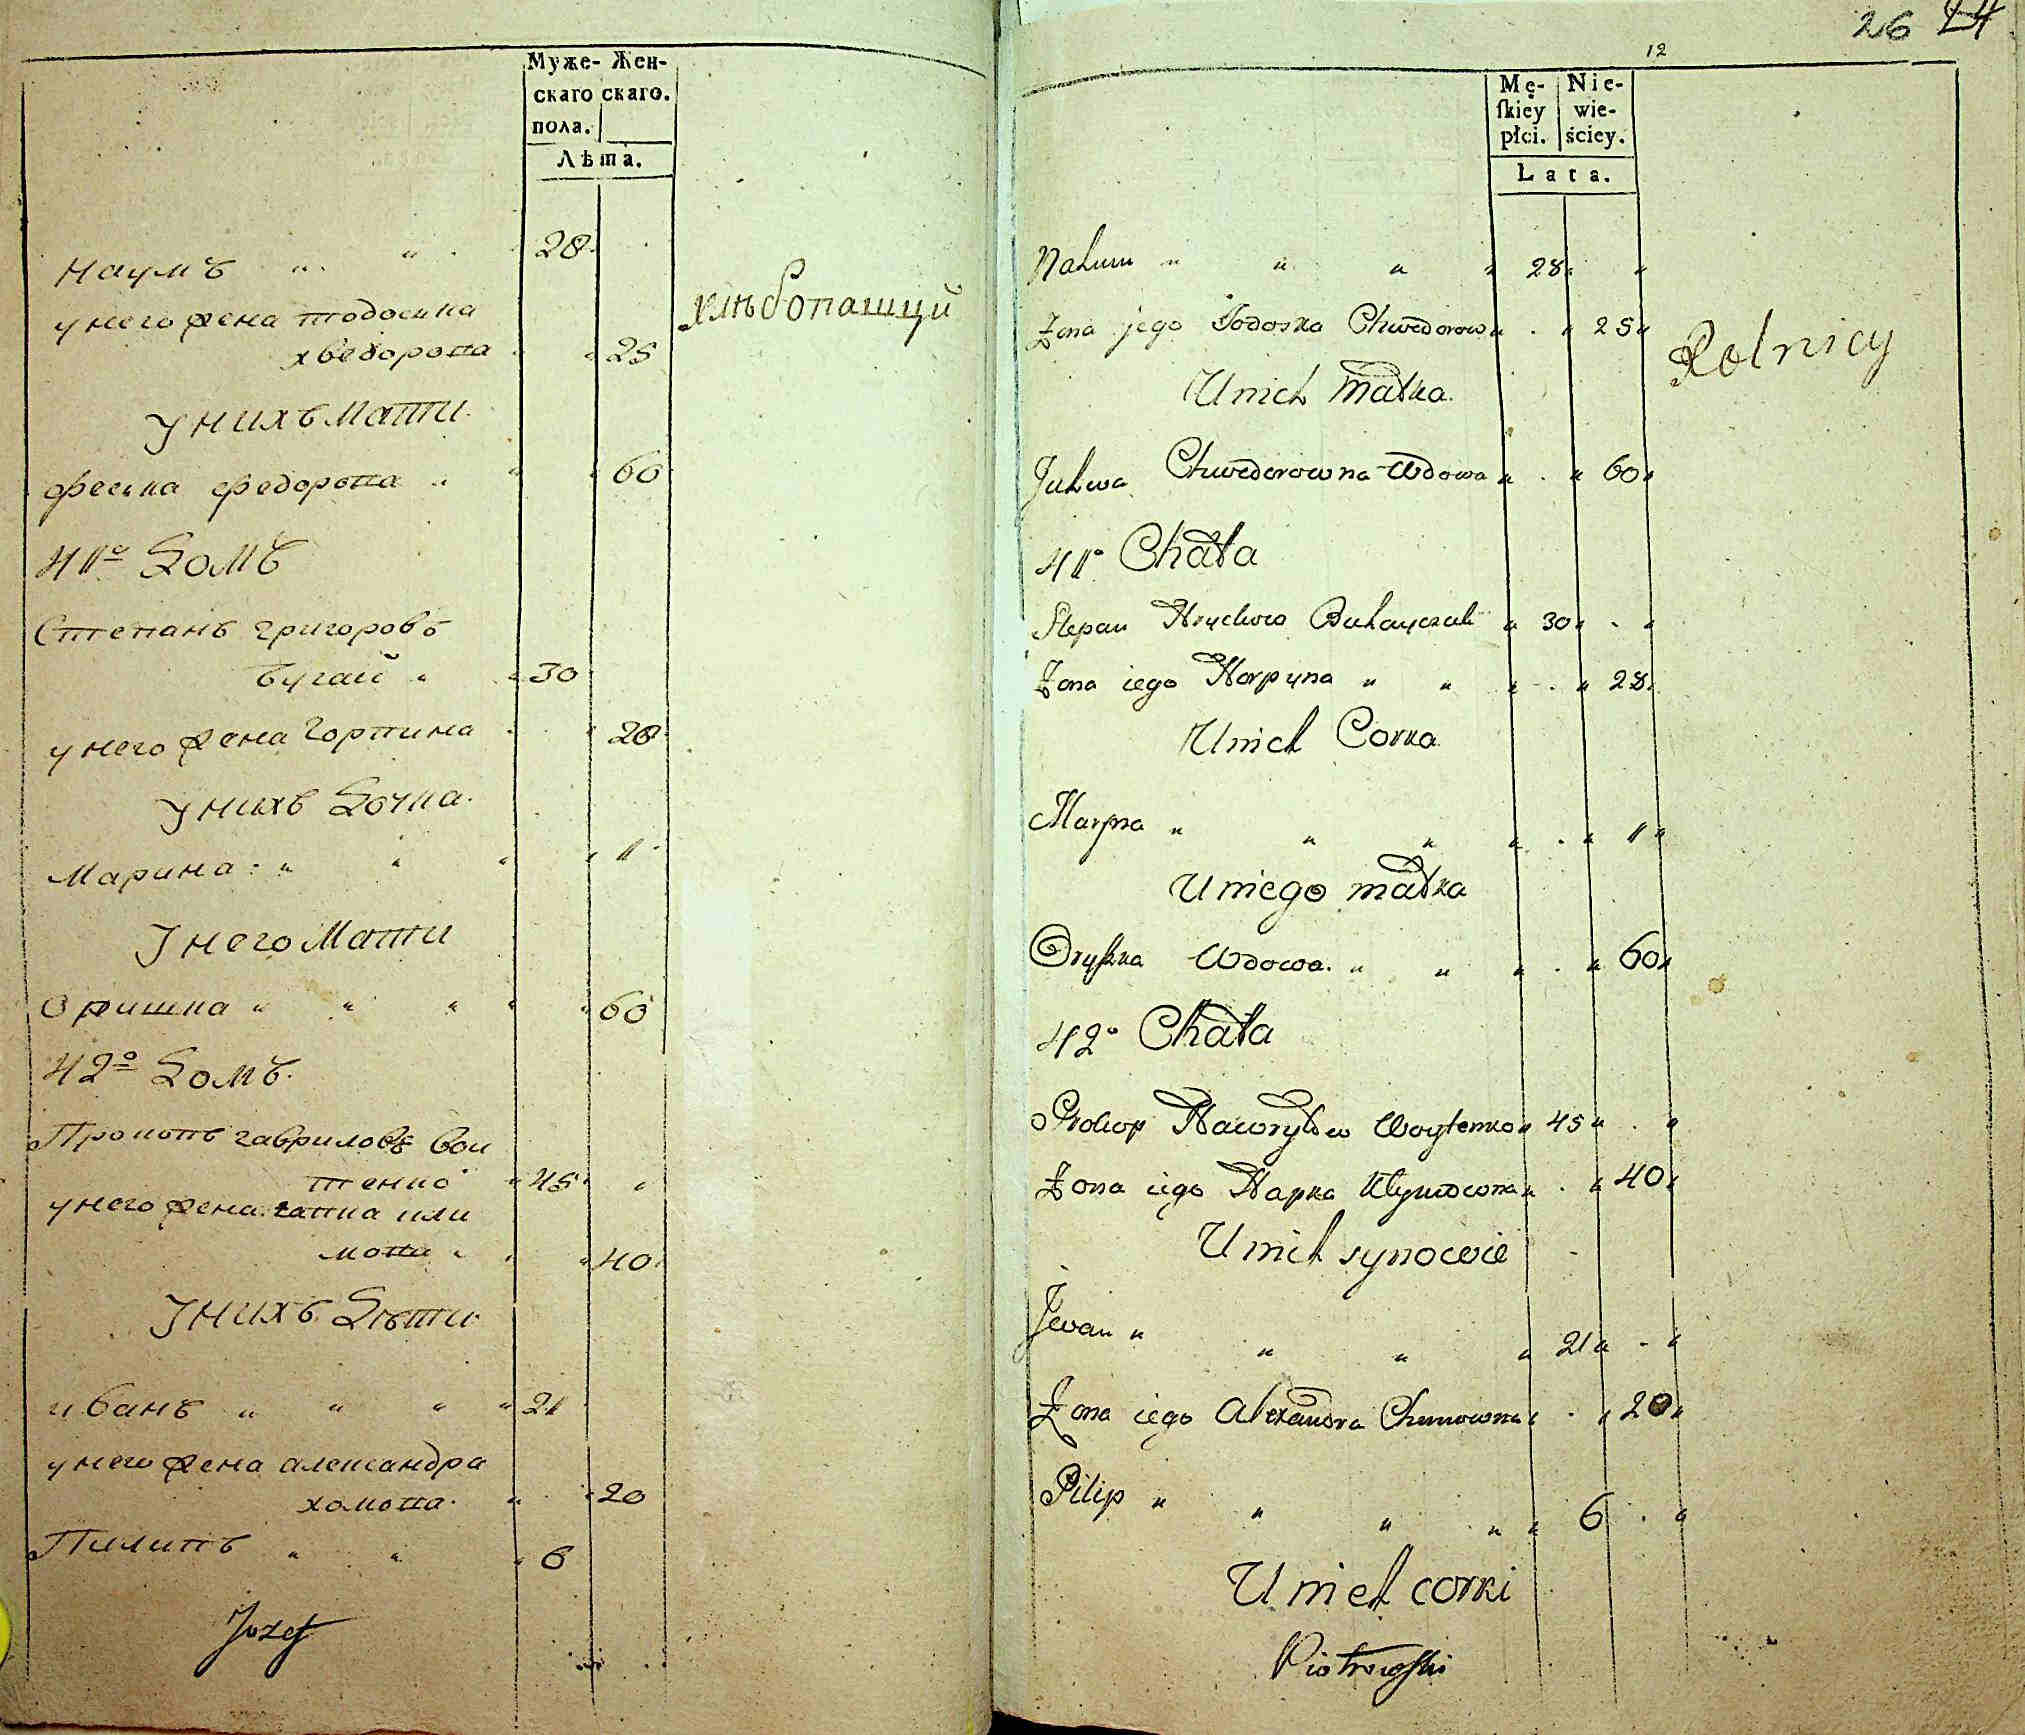 Муже- Жен-
скаго скаго.
пола.
Лѣта.
Наумъ " " 28
у него жена тодоська
хведорова " 25
хлѣбопашцы
У нихъ Мати.
феська федорова " " 60
41º Домъ
Степанъ григоровъ
бугай " 30
у него жена Горпина " 28
У нихъ Дочка.
Марина " " " " 11
У него Мати
Оришка " " " " 60
42º Домъ.
Прокопъ гавриловъ вои
тенко " 45 "
у него жена гапка кли
мова " " 40
У нихъ Дѣти
иванъ " " " " 21
у него жена александра
хомова. " " 20
Пилипъ " " " 6
Jozef
26 24
12
Mę- Nie-
skiey wie-
płci. ściey.
Lata.
Nahum " " " " 28 "
Żona jego Todoska Chwedorow " " 25 "
Rolnicy
U nich Matka.
Chwedorowna Wdowa " " 60 "
41º Chata
Stepan Hryckow Buhayczuk " 30 " "
Żona iego Horpyna " " " " 28
U nich Corka
Maryna " " " " " 11 "
U niego matka
Oryszka Wdowa. " " " " 60 "
42º Chata
Prokop Hawryłow Woytenko " 45 " "
Żona iego Hapka Klymowna " " 40 "
U nich synowie
Jwan " " " " 21 " "
Żona iego Alexandra Chomowna " " 20 "
Pilip " " " " " 6 "
U nich corki
Piotrowski